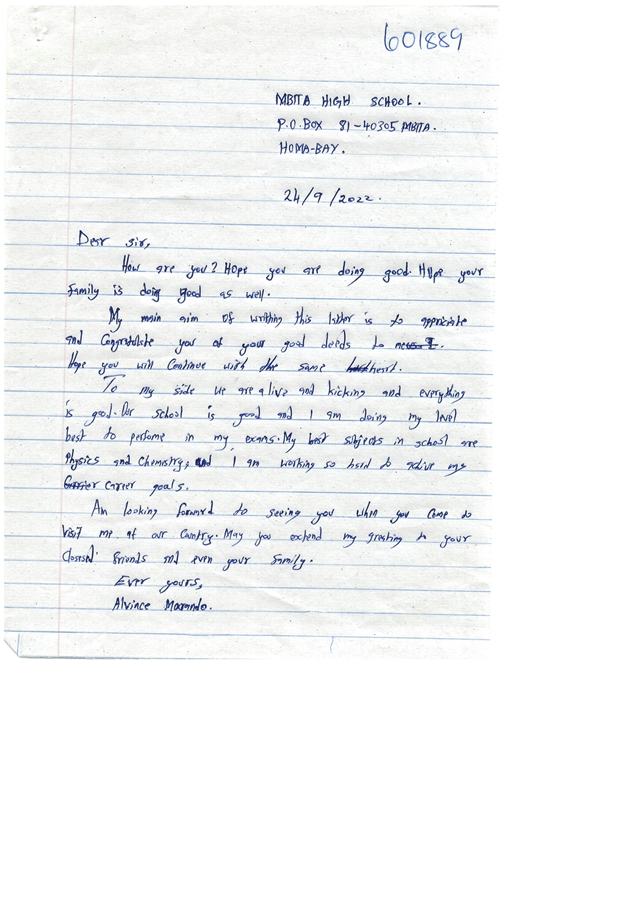 601889
MBITA HIGH SCHOOL.
P.O.BOX 81-40305 MBITA.
HOMA-BAY.
24/9/2022.
Dear sir,
How are you? Hope you are doing good. Hope your
family is doing good as well.
My main aim of writhing this latter is to appriciate
and Congratulate you of your good deeds to
Hope you will Continue with the same heard.
To my side we are alive and kicking and everything
is good. Our school is good and I am doing my level
best to perfome in my exams. My best subjects in school are
Physics and Chemistry, and I am working so hard to achive my
career goals.
Am looking forward to seeing you when you come to
visit me at our Country. May you extend my greating to your
closest friends and even your family.
Ever yours,
Alvince Marando.